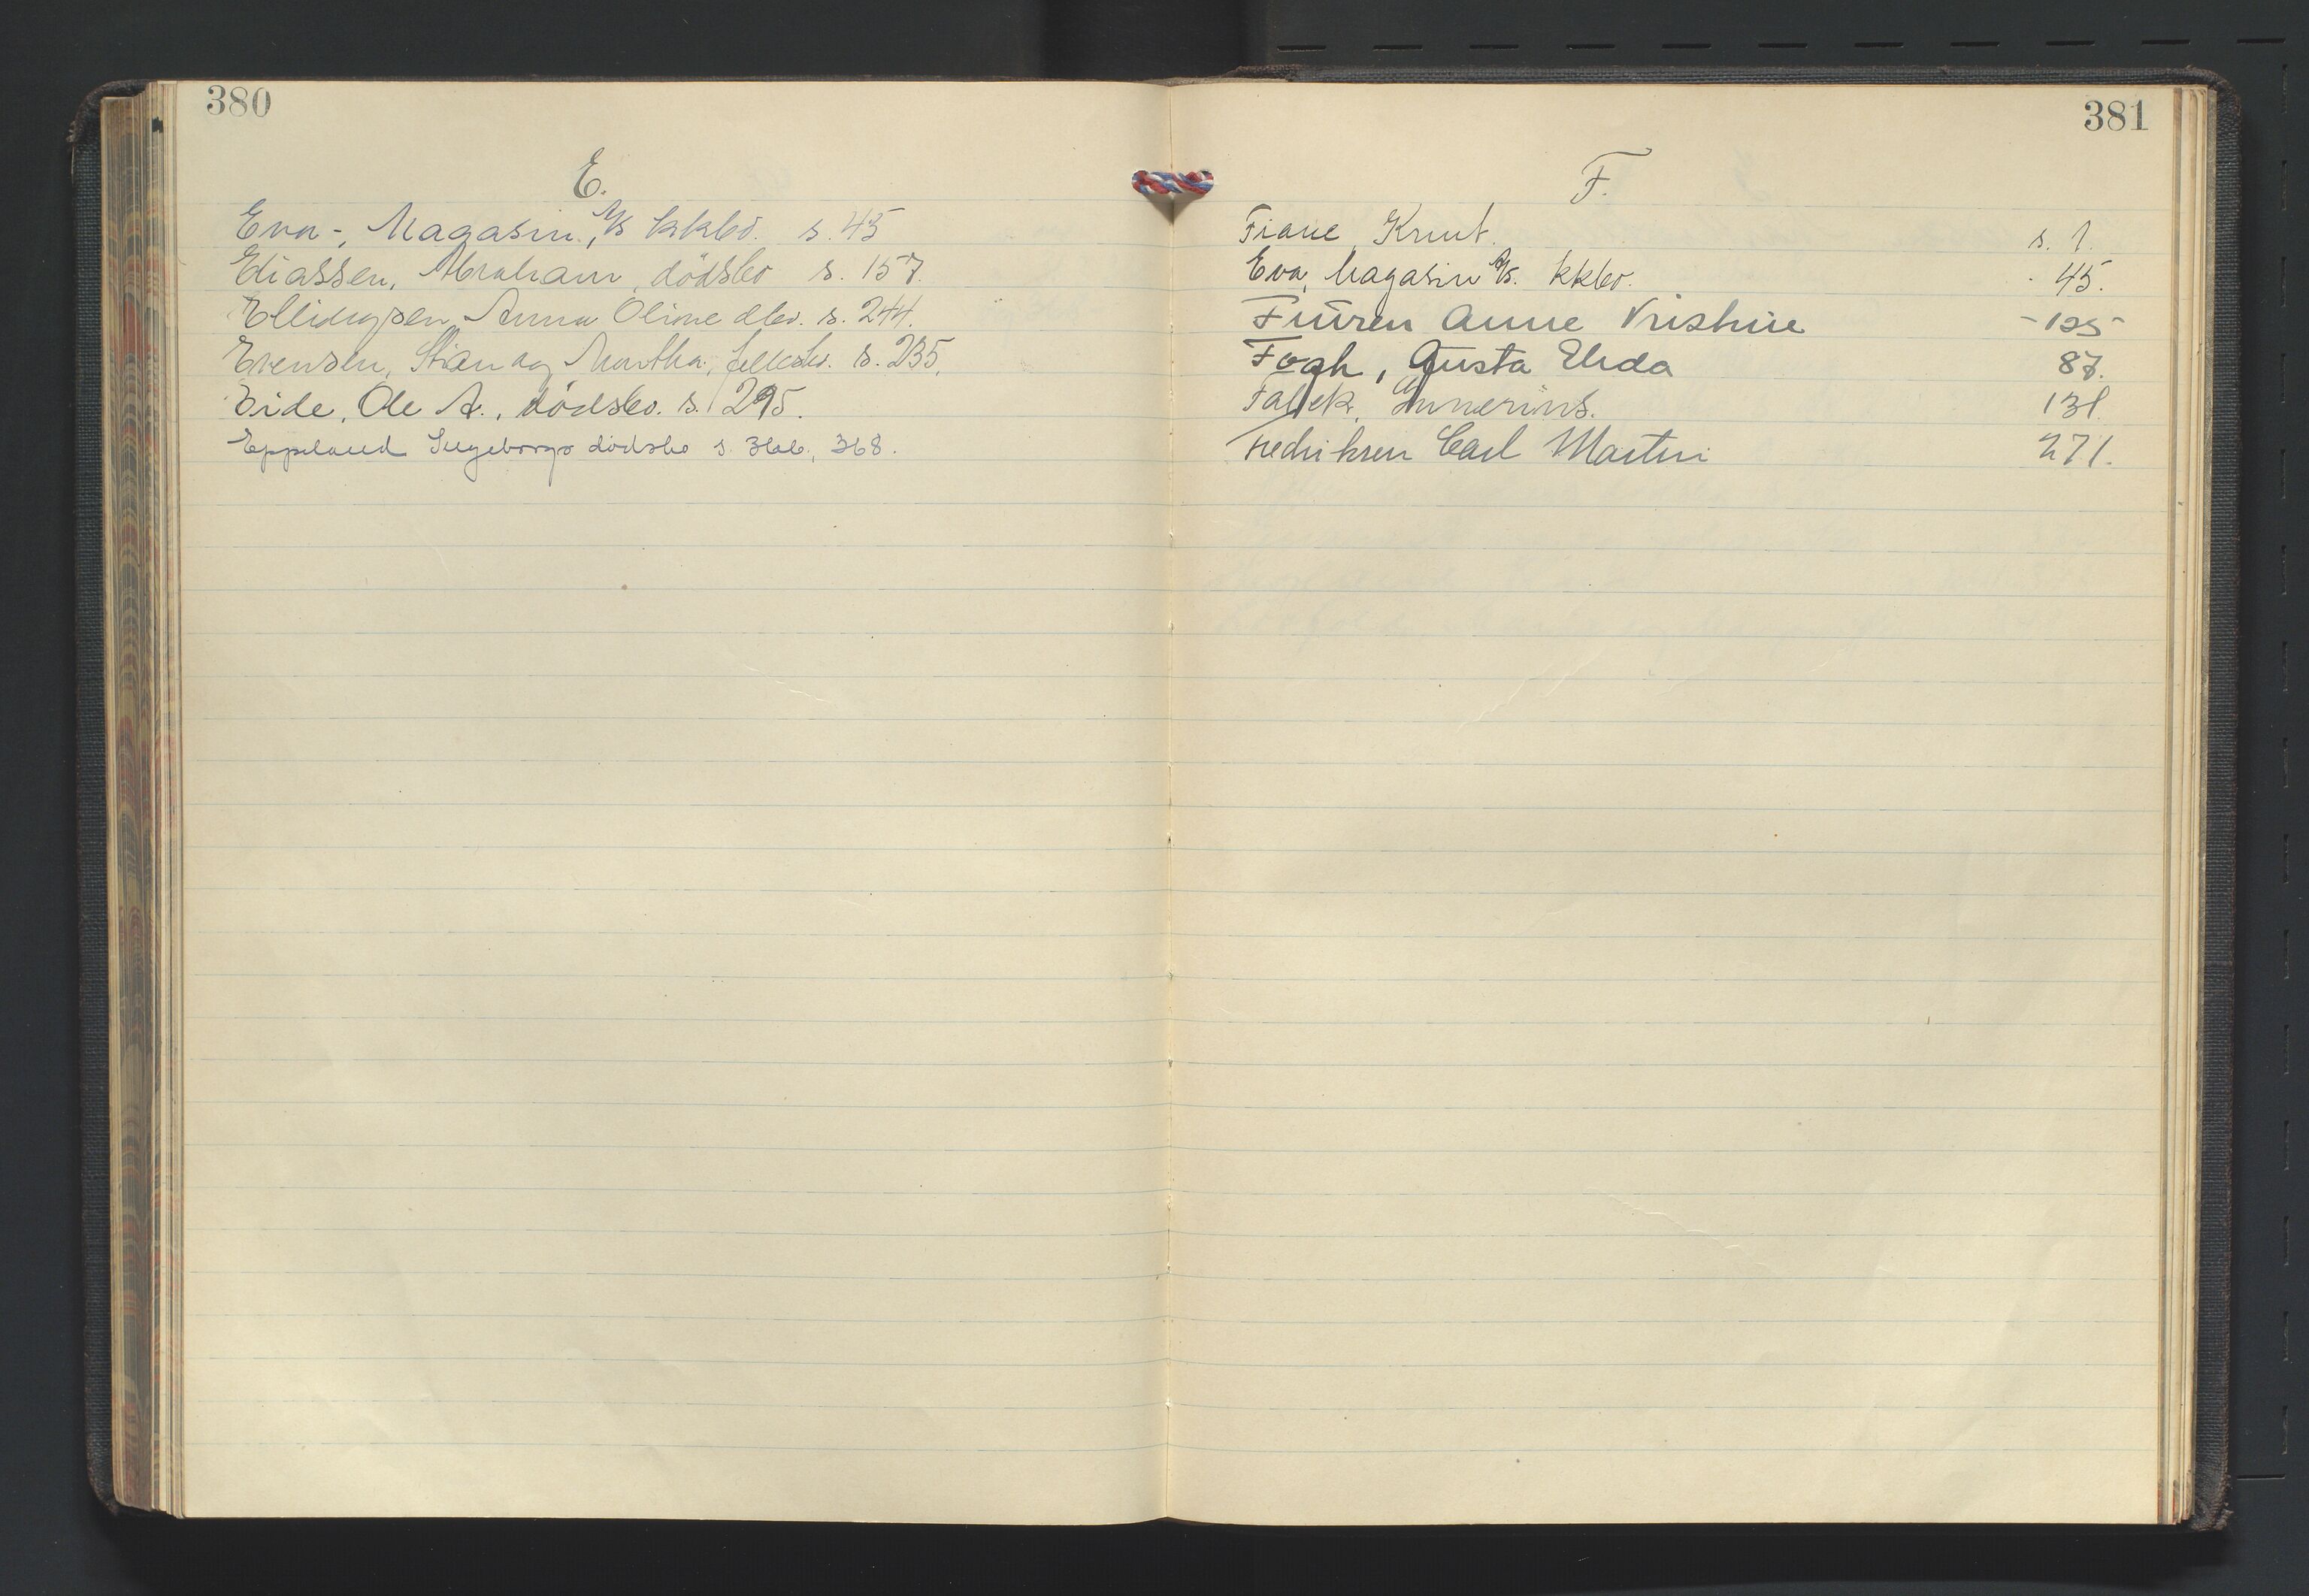 380
E.
Eva-, Magasin, A/S kkbo. s. 45
Eliassen, Abraham, dödsbo s. 157.
Ellingsen, Anna Oline dbo. s. 244.
Evensen, Stian og Martha, fellesbo. s. 235.
Eide, Ole A., dödsbo. s. 295.
Eppeland Ingeborgs dödsbo s. 366, 368.
381
F.
Fiane, Knut. s. 1.
Eva, Magasin A/S. kkbo. - 45.
Anne Kristine - 125 -
Fogh, Gusta Elida 87.
Falck, 131.
Fredriksen Carl Martin 271.